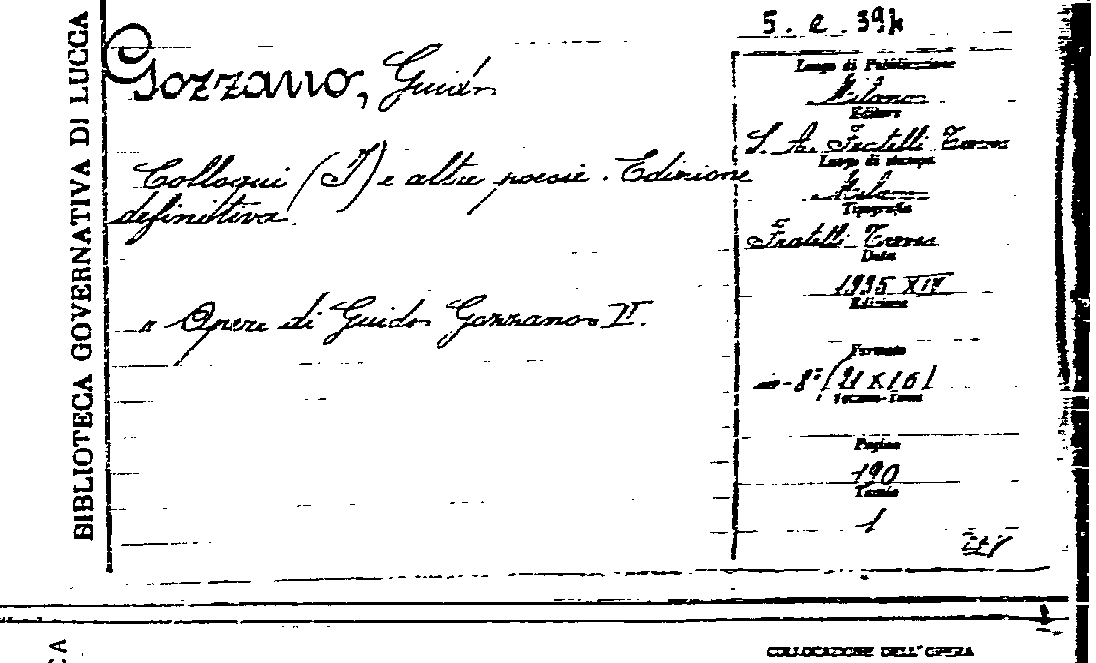 BIBLIOTECA GOVERNATIVA DI LUCCA
Gozzano, Guido
Colloqui (I) e altre poesie. Edizione
definitiva.
" Opere di Guido Gozzano II.
5. e. 39
Luogo di Pubblicazione
Milano
Editore
S. A. Fratelli Treves
Luogo di stampa
Milano
Tipografia
Fratelli Treves
Data
1935 XIV
Edizione
Formato
in-8° (21 x 16)
Pagine
190
Tomia
1
COLLOCAZIONE DELL'OPERA
CA